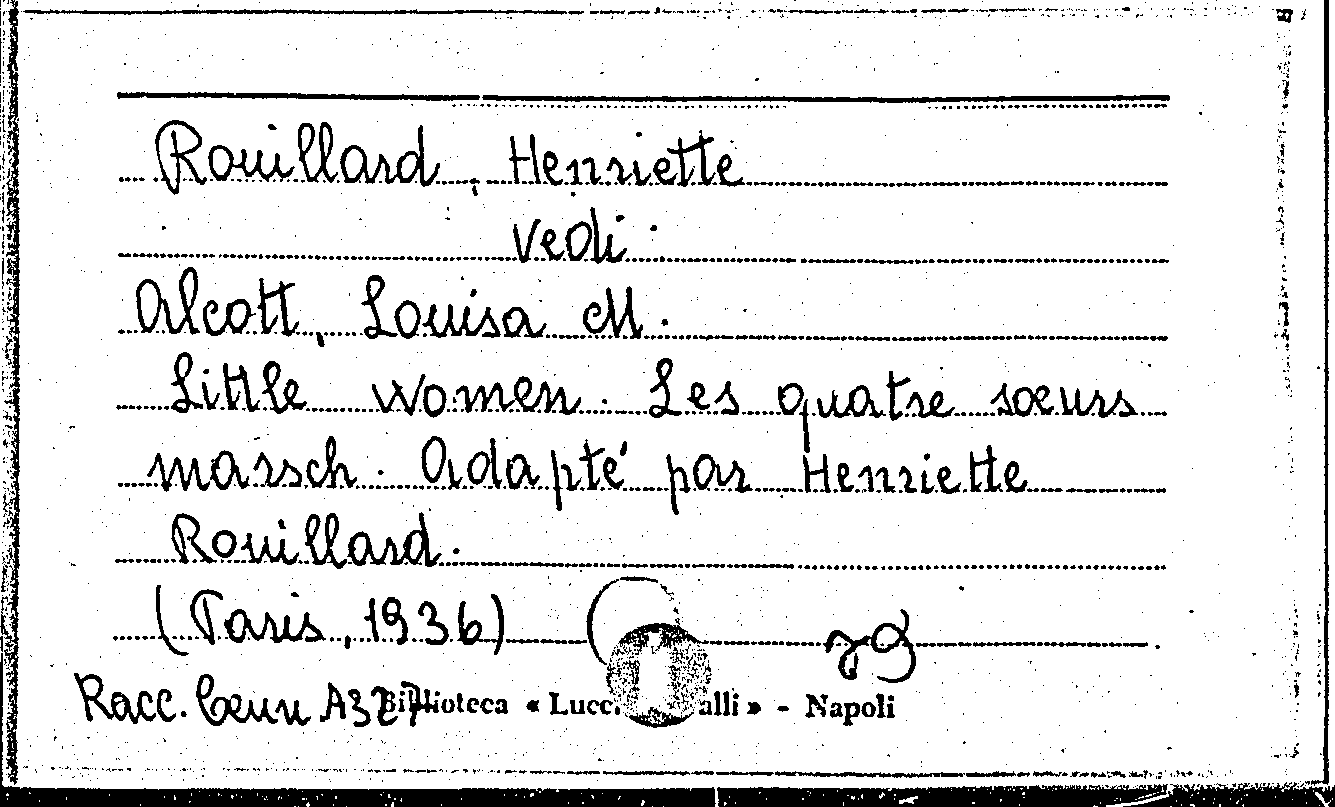 Rouillard, Henriette
Vedi:
Alcott, Louisa M.
Little women. Les quatre sœurs
marsch. Adapté par Henriette
Rouillard.
(Paris, 1936)
Racc. A327 Biblioteca « Lucc alli » - Napoli